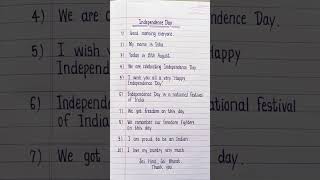 Independence Day
1) Good morning everyone.
2) My name is Isha.
3) Today is 15th August.
4) We are celebrating Independence Day.
5) I wish you all a very "Happy
Independence Day".
6) Independence Day is a national festival
of India.
7) We got freedom on this day.
8) We remember our freedom fighters
on this day.
9) I am proud to be an Indian.
10) I love my country very much.
Jai Hind, Jai Bharat.
Thank you.
4) We are
5) I wish y
Independen
6) Independen
of India.
7) We got
dence Day.
Happy
onal festival
day.